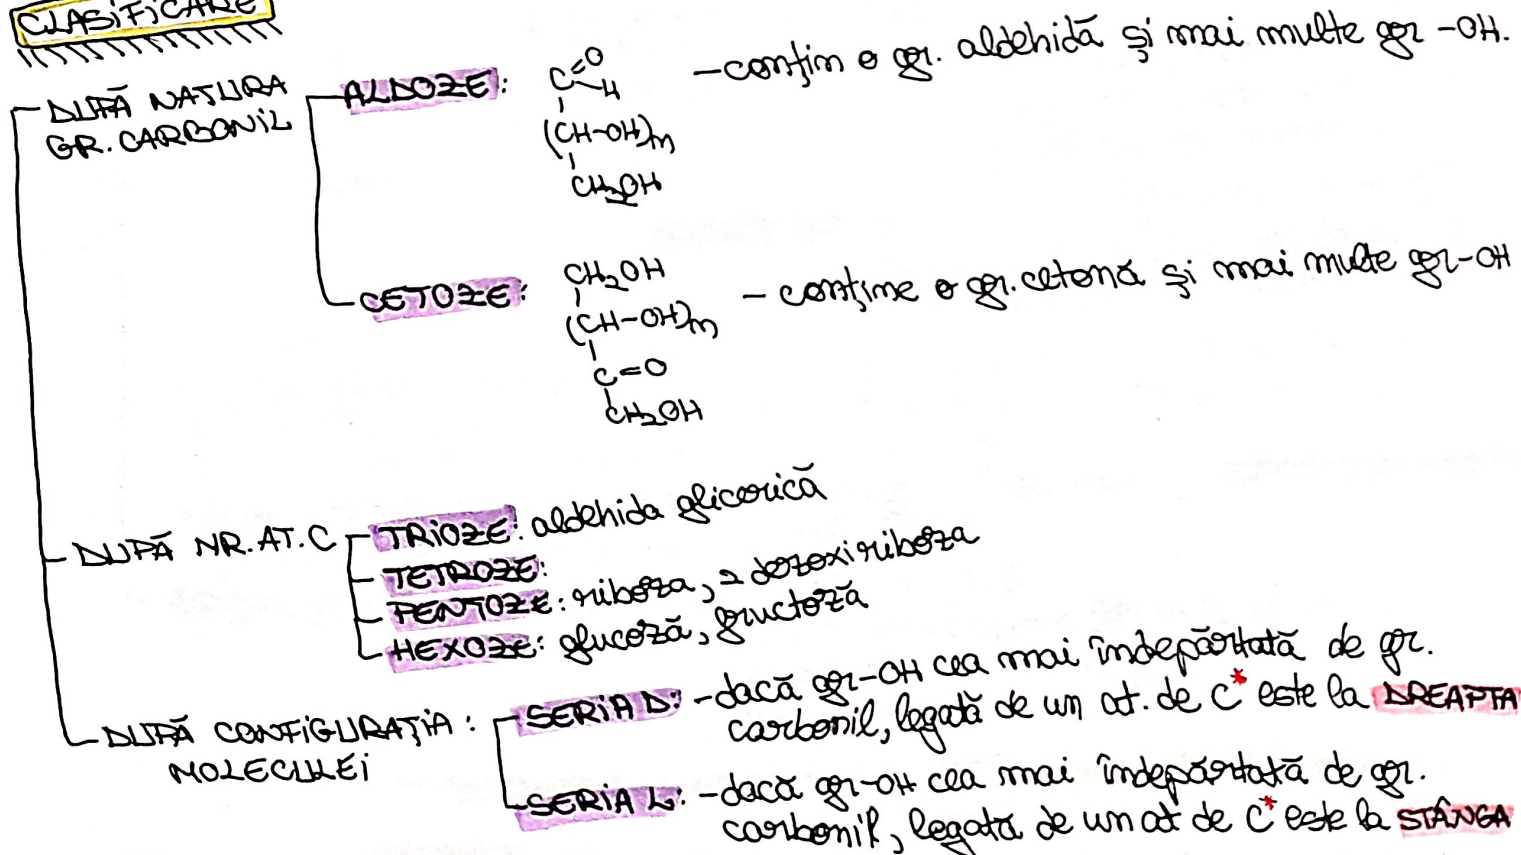 CLASIFICARE
DUPĂ NATURA
GR. CARBONIL
ALDOZE:
C=O
H
(CH-OH)n
CH2OH
-conțin o gr. aldehidă și mai multe gr -OH.
CETOZE:
CH2OH
(CH-OH)n
C=O
CH2OH
- conține o gr. cetonă și mai multe gr-OH
DUPĂ NR. AT. C
TRIOZE: aldehida glicerică
TETROZE:
PENTOZE: riboza, 2 dezoxiriboza
HEXOZE: glucoză, fructoză
DUPĂ CONFIGURAȚIA:
MOLECULEI
SERIA D: -dacă gr-OH cea mai îndepărtată de gr.
carbonil, legată de un at. de C* este la DREAPTA
SERIA L: -dacă gr-OH cea mai îndepărtată de gr.
carbonil, legată de un at de C* este la STÂNGA